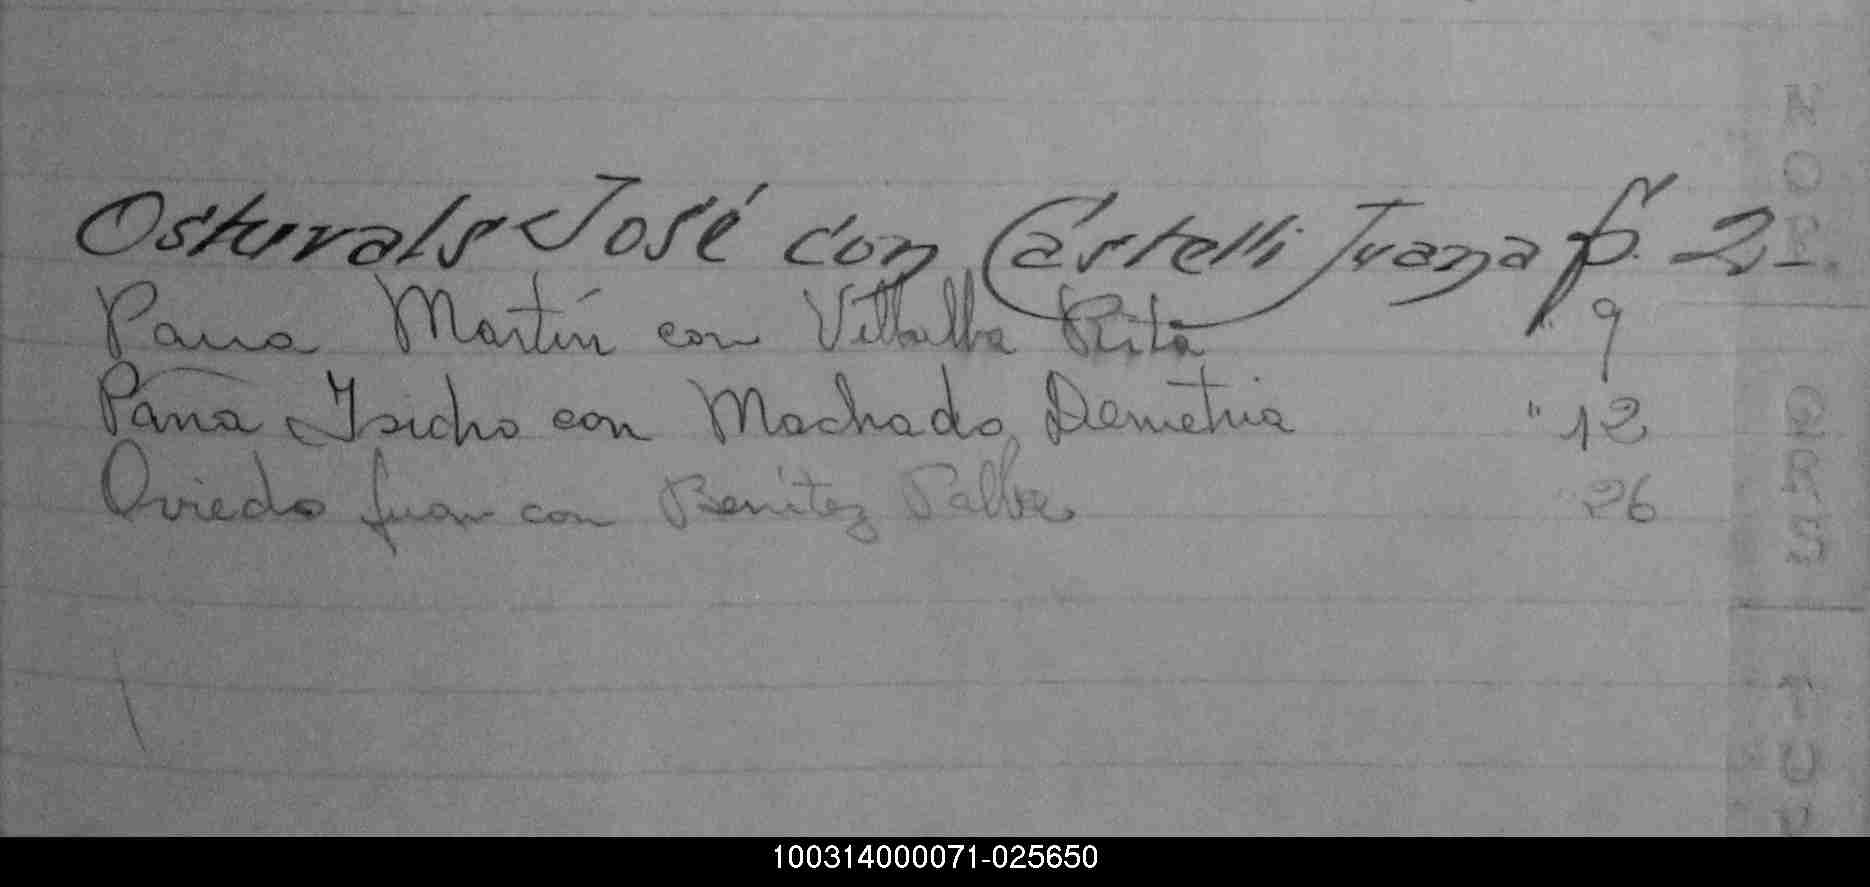 Osturals José con Castelli Juana f. 2
Pana Martín con Villalba Rita " 9
Paña Isidro con Machado Demetria " 12
Oviedo Juan con Benítez " 26
N
O
P.
Q
R
S
T
U
V
100314000071-025650